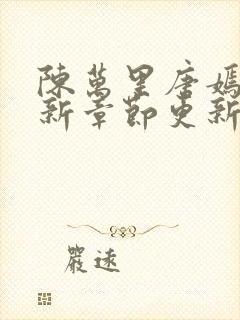 陳萬里唐嫣
新章節更新
嚴遠